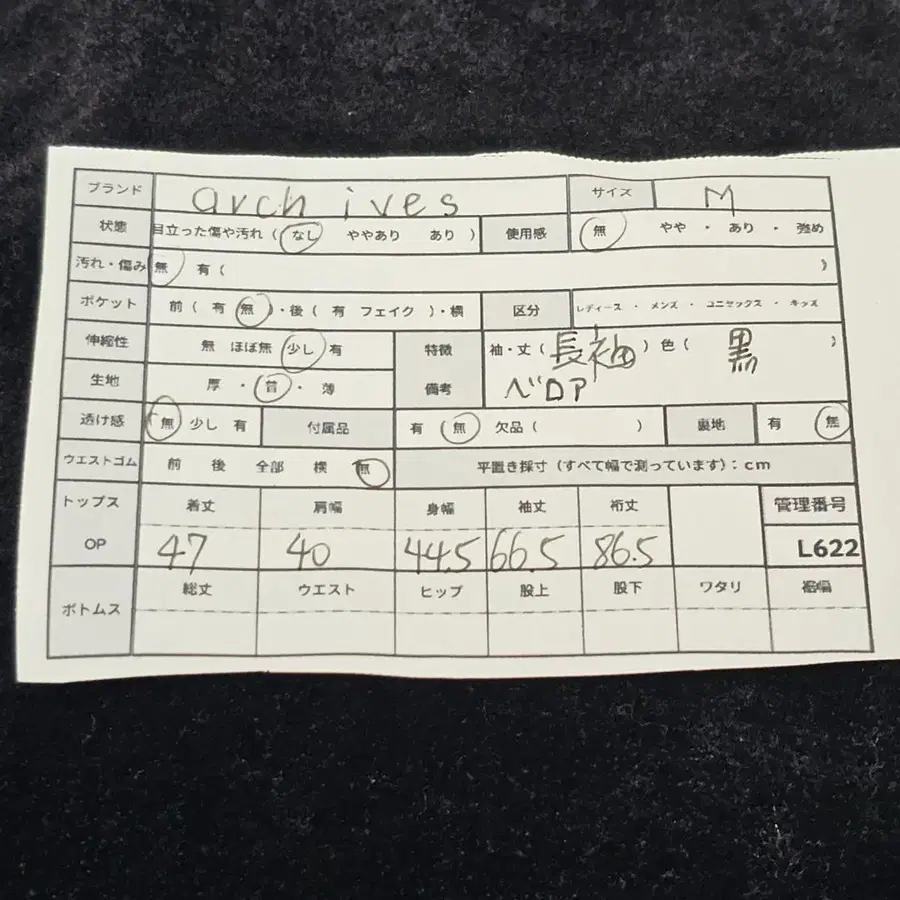 ブランド archives サイズ M
状態 目立った傷や汚れ ( なし ややあり あり ) 使用感 無 やや ・ あり ・ 強め
汚れ・傷み 無 有 ( )
ポケット 前 ( 有 無 )・後 ( 有 フェイク )・横 区分 レディース ・ メンズ ・ ユニセックス ・ キッズ
伸縮性 無 ほぼ無 少し 有 特徴 袖・丈 ( 長袖 ) 色 ( 黒 )
生地 厚 ・ 普 ・ 薄 備考 ベロア
透け感 無 少し 有 付属品 有 無 欠品 ( ) 裏地 有 無
ウエストゴム 前 後 全部 横 無 平置き採寸 (すべて幅で測っています) : cm
トップス 着丈 肩幅 身幅 袖丈 裄丈 管理番号
OP 47 40 44.5 66.5 86.5 L622
ボトムス 総丈 ウエスト ヒップ 股上 股下 ワタリ 裾幅